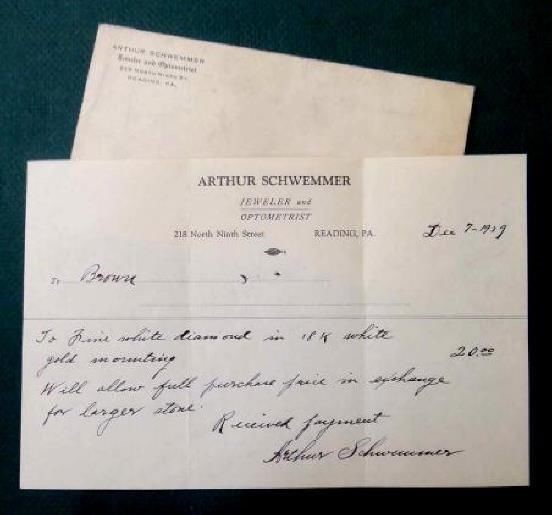 ARTHUR SCHWEMMER
Jeweler and Optometrist
READING, PA.
ARTHUR SCHWEMMER
JEWELER and
OPTOMETRIST
218 North Ninth Street READING, PA.
Dec 7-1939
To Brown
To Fine white diamond in 18K white
gold mounting 20.00
Will allow full purchase price in exchange
for larger stone.
Received payment
Arthur Schwemmer